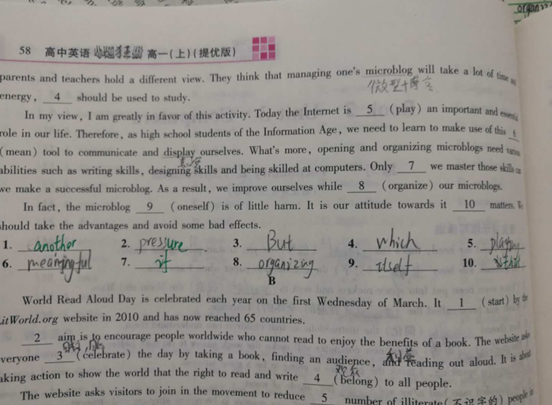 58 高中英语 高一(上)(提优版)
parents and teachers hold a different view. They think that managing one's microblog will take a lot of time
微型博客
energy, 4 should be used to study.
In my view, I am greatly in favor of this activity. Today the Internet is 5 (play) an important and essential
role in our life. Therefore, as high school students of the Information Age, we need to learn to make use of this 6
(mean) tool to communicate and display ourselves. What's more, opening and organizing microblogs need various
abilities such as writing skills, designing skills and being skilled at computers. Only 7 we master those skills can
we make a successful microblog. As a result, we improve ourselves while 8 (organize) our microblogs.
In fact, the microblog 9 (oneself) is of little harm. It is our attitude towards it 10 matters. We
should take the advantages and avoid some bad effects.
1. another 2. pressure 3. But 4. which 5. playing
6. meaningful 7. if 8. organizing 9. itself 10.
B
World Read Aloud Day is celebrated each year on the first Wednesday of March. It 1 (start) by the
LitWorld.org website in 2010 and has now reached 65 countries.
2 aim is to encourage people worldwide who cannot read to enjoy the benefits of a book. The website asks
everyone 3 (celebrate) the day by taking a book, finding an audience, and reading out aloud. It is about
观众
taking action to show the world that the right to read and write 4 (belong) to all people.
The website asks visitors to join in the movement to reduce 5 number of illiterate(不识字的) people